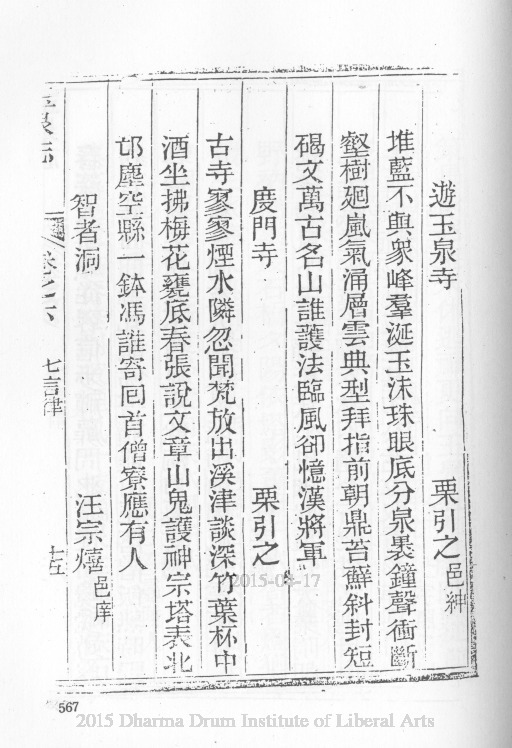 遊玉泉寺 栗引之 邑紳
堆藍不與衆峰羣涎玉沫珠眼底分泉褁鐘聲衝斷
壑樹廻嵐氣涌層雲典型拜指前朝鼎苔蘚斜封短
碣文萬古名山誰護法臨風卻憶漢將軍
度門寺 栗引之
古寺寥寥煙水隣忽聞梵放出溪津談深竹葉杯中
酒坐拂梅花甕底春張說文章山鬼護神宗塔表北
邙塵空縣一鉢馮誰寄回首僧寮應有人
智者洞 汪宗熺 邑庠
玉泉志 卷之六 七言律
567
2015-03-17
2015 Dharma Drum Institute of Liberal Arts